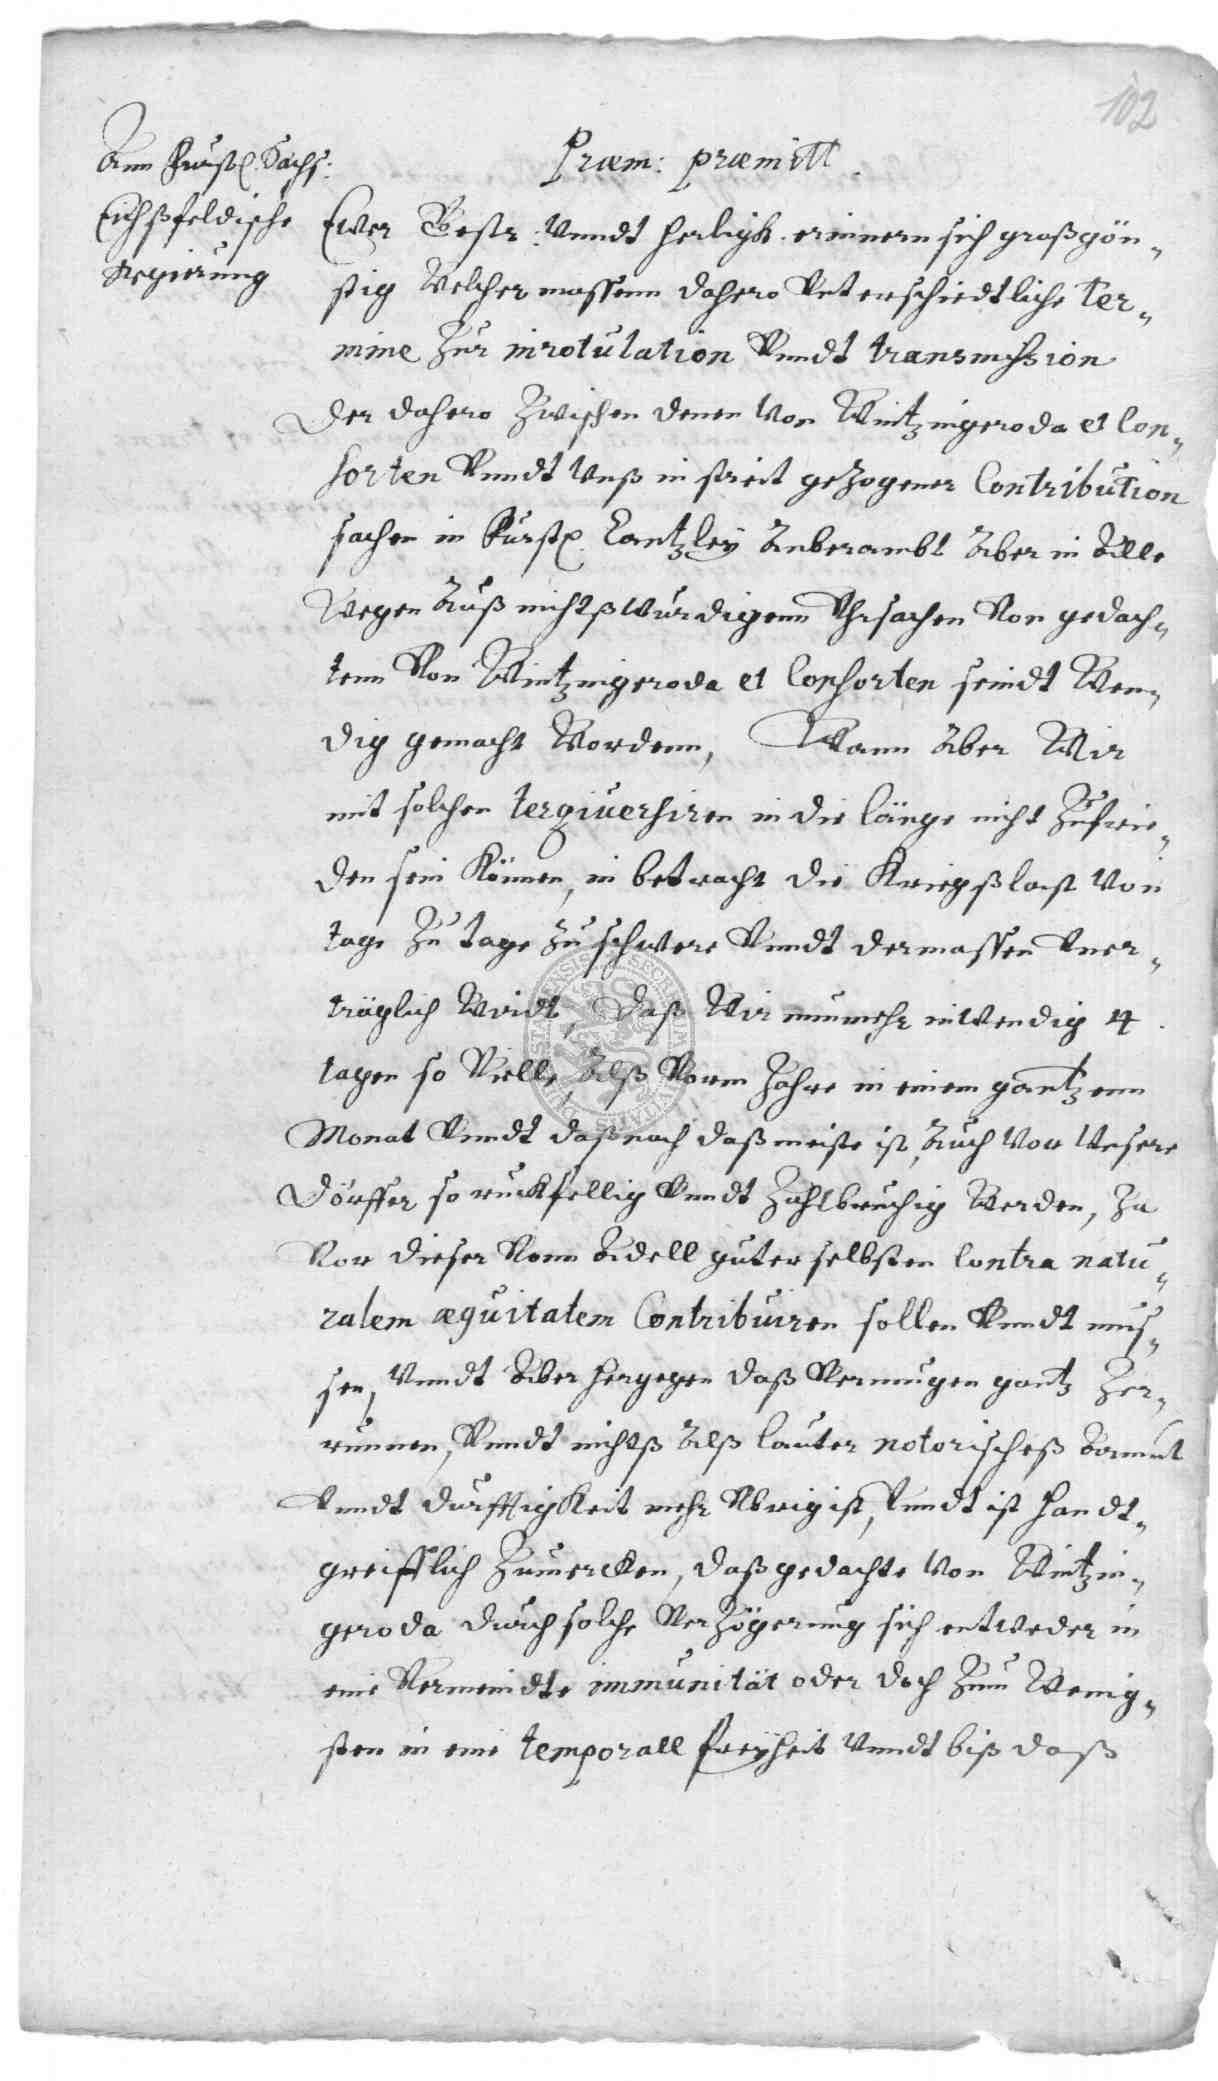 102
Ann Furstl. Sächß:
Eichßfeldische
Regierung
Præm: præmitt.
Ewer Gestr: Vnndt Herligk. erinnern sich großgön-
stig Welcher massenn dahero Vnterschiedtliche ter-
mine Zur inrotulation Vnndt transmission
der dahero Zwischen denen Von Wintzingeroda et Con-
sorten Vnndt Vnß in streit gezogener Contribution
sachen in Furstl. Cantzley Anberambt Aber in Alle
Wegen Auß nichtßwurdigenn Vhrsachen Von gedach-
tenn Von Wintzingeroda et Consorten seindt Wen-
dig gemacht Wordenn, Wann Aber Wir
mit solchen tergiuersiren in die länge nicht Zufrie-
den sein Können, in betracht die Kriegßlast Von
tage Zu tage Zu schwere Vnndt dermassen Vner-
träglich Wirdt, Daß Wir nunmehr inwendig 4
tagen so Viell, Alß Vorm Jahre in einem gantzenn
Monat Vnndt daß noch daß meiste ist, Auch Von Vnsere
Dörffer so ruckfellig Vnndt Zahlbruchig Werden, Zu
Vor dieser Vonn Adell guter selbsten Contra natu-
ralem æquitatem Contribuiren sollen Vnndt mus-
sen, Vnndt Aber hergegen daß Vermugen gantz Zer-
runnen, Vnndt nichtß Alß lauter notorischeß Armut
Vnndt durfftigKeit mehr Vbrig ist, Vnndt ist handt-
greifflich Zumercken, daß gedachte Von Wintzin-
geroda durch solche VerZögerung sich entweder in
eine Vermeindte immunität oder doch Zum Wenig-
sten in eine temporall freyheit Vnndt biß daß